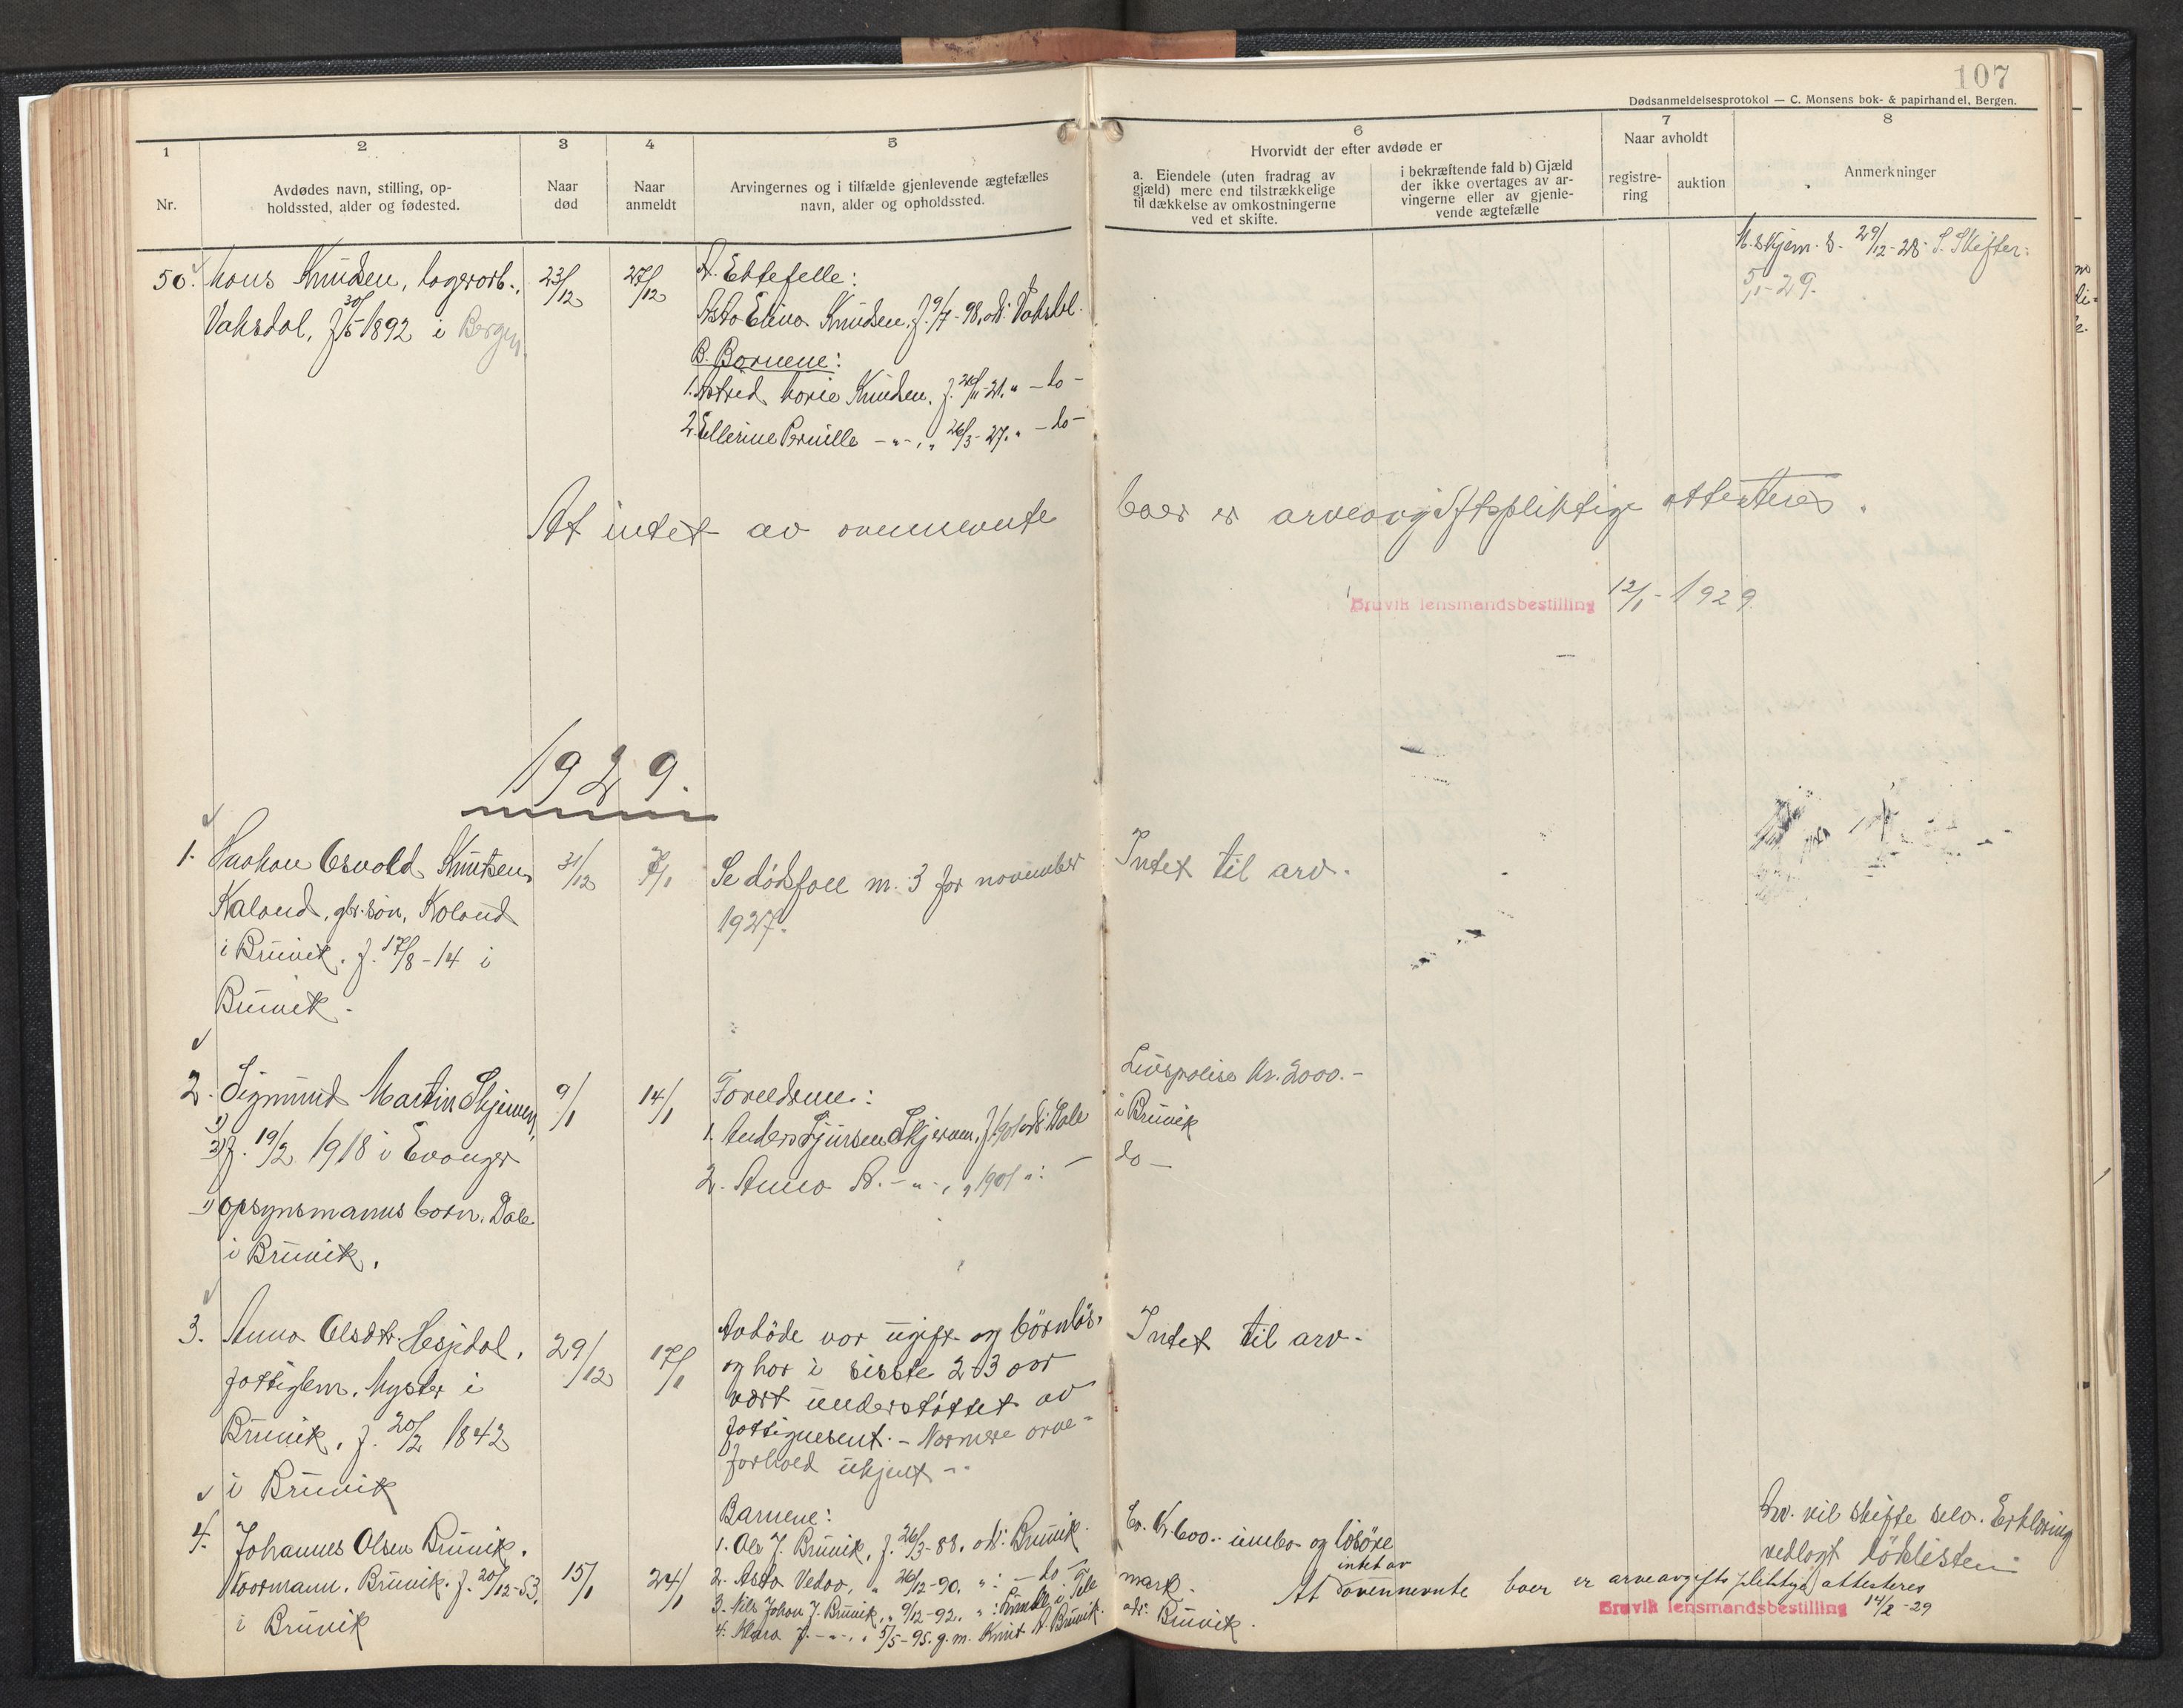 107
Dødsanmeldelsesprotokol — C. Monsens bok- & papirhandel, Bergen.
1
2
3
4
5
6
7
8
Nr.
Avdødes navn, stilling, op-
holdssted, alder og fødested.
Naar
død
Naar
anmeldt
Arvingernes og i tilfælde gjenlevende ægtefælles
navn, alder og opholdssted.
Hvorvidt der efter avdøde er
a. Eiendele (uten fradrag av
gjæld) mere end tilstrækkelige
til dækkelse av omkostningerne
ved et skifte.
i bekræftende fald b) Gjæld
der ikke overtages av ar-
vingerne eller av gjenle-
vende ægtefælle
Naar avholdt
registre-
ring
auktion
Anmerkninger
50. Hans Knudsen, lagerarb.,
Vaksdal, f. 30/5 1892 i Bergen.
23/12
27/12
A. Ektefelle:
Asta Elina Knudsen, f. 9/7-98, adr. Vaksdal.
B. Barnene:
1. Astrid Marie Knudsen, f. 21. " - do -
2. Ellerine Pernille - " - , " 26/3-27. " - do -
29/12-28. S. Skifter:
5/1-29.
At intet av ovennevnte boer er arveavgiftspliktige attesteres.
Bruvik lensmandsbestilling 12/1-1929.
1929.
1. Haakon Osvald Knutsen
Kaland, gbr.søn, Kaland
i Bruvik. f. 17/8-14 i
Bruvik.
31/12
7/1
Se dødsfall nr. 3 for november
1927.
Intet til arv.
2. Sigmund Martin Skjerven,
2) f. 19/2 1918 i Evanger
1) opsynsmanns barn, Dale
i Bruvik.
9/1
14/1
Foreldrene:
1. Anders Sjursen Skjerven, f. 1901 adr. Dale i Bruvik
2. Anna A. - " - , " 1901 ": - do -
Livspolise kr. 2000.-
3. Anna Olsdtr. Hesjedal,
fattiglem, Myster i
Bruvik, f. 20/2 1842
i Bruvik
29/12
17/1
Avdøde var ugift og barnløs.
og har i sisste 2-3 aar
vært understøttet av
fattigvesenet. - Nærmere arve-
forhold ukjent -
Intet til arv.
4. Johannes Olsen Bruvik.
Kaarmann, Bruvik. f. 20/12-53.
i Bruvik
15/1
24/1
Barnene:
1. Ole J. Bruvik, f. 26/3-88. adr: Bruvik.
2. Asta Vedaa, " 26/12-90. ": - do -
3. Nils Johan J. Bruvik, " 9/12-92. ": i Tele
mark.
4. Klara J. - " - , " 5/5-95. g.m. Knut A. Bruvik. adr: Bruvik.
Ca. kr. 600.- innbo og løsøre
Arv. vil skifte selv. Erklæring
vedlagt dødslisten
At intet av ovennevnte boer er arveavgiftspliktige attesteres
Bruvik lensmandsbestilling 14/2-29